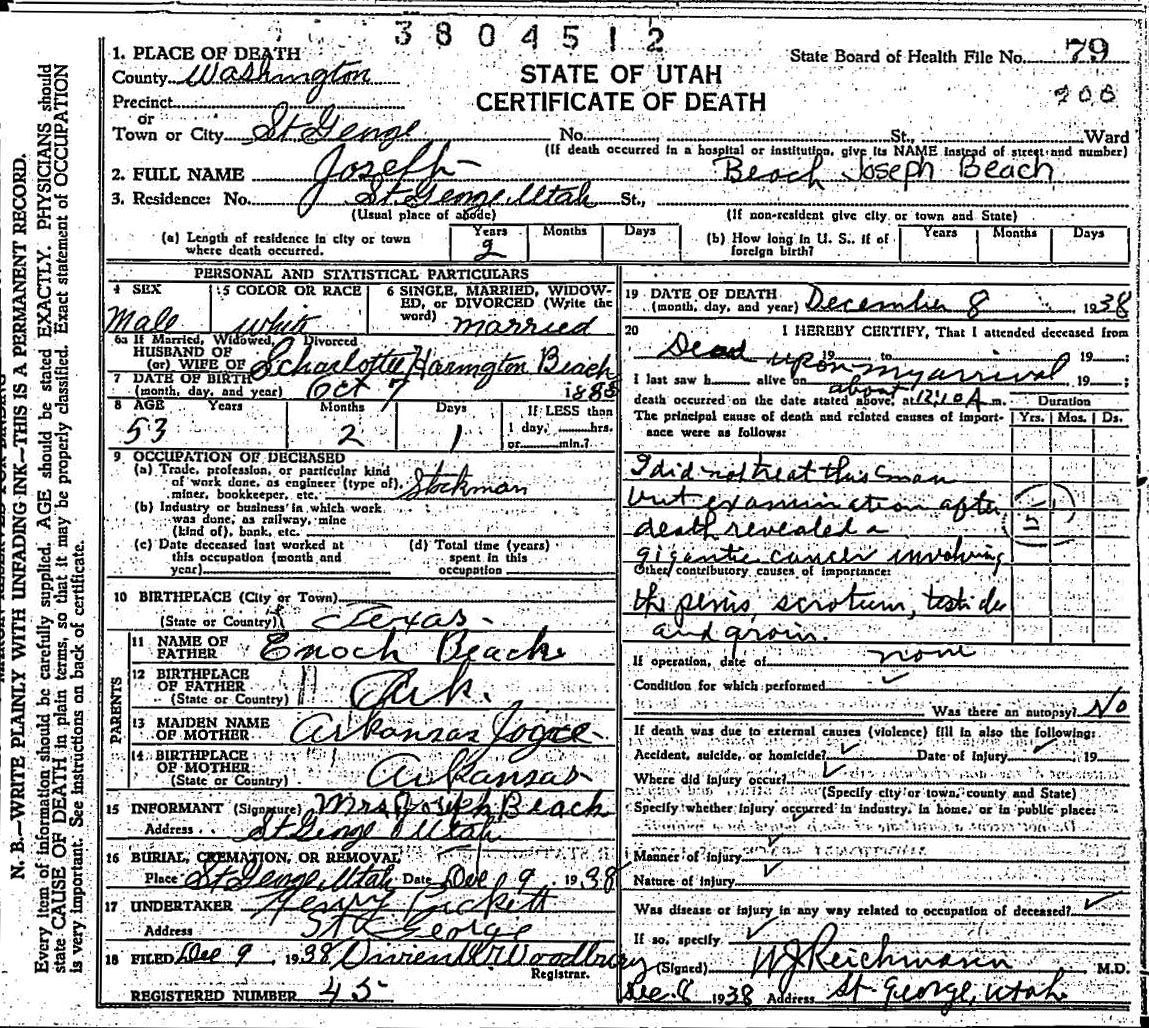 3804512
1. PLACE OF DEATH
State Board of Health File No. 79
County Washington
STATE OF UTAH
CERTIFICATE OF DEATH
200
Precinct
or
Town or City St George No. St., Ward
(If death occurred in a hospital or institution, give its NAME instead of street and number)
2. FULL NAME Joseph Beach Joseph Beach
3. Residence: No. St. George, Utah St.,
(Usual place of abode) (If non-resident give city or town and State)
(a) Length of residence in city or town where death occurred. Years 2 Months Days
(b) How long in U. S., if of foreign birth? Years Months Days
PERSONAL AND STATISTICAL PARTICULARS
4 SEX 5 COLOR OR RACE 6 SINGLE, MARRIED, WIDOWED, or DIVORCED (Write the word)
Male white married
6a If Married, Widowed, Divorced
HUSBAND OF
(or) WIFE OF Scharlotte Harington Beach
7 DATE OF BIRTH
(month, day, and year) Oct 7 1885
8 AGE Years Months Days If LESS than
1 day, hrs.
or min.?
53 2 1
9 OCCUPATION OF DECEASED
(a) Trade, profession, or particular kind
of work done, as engineer (type of),
miner, bookkeeper, etc. Stockman
(b) Industry or business in which work
was done, as railway, mine
(kind of), bank, etc.
(c) Date deceased last worked at
this occupation (month and
year)
(d) Total time (years)
spent in this
occupation
10 BIRTHPLACE (City or Town)
(State or Country) Texas
PARENTS
11 NAME OF
FATHER Enoch Beach
12 BIRTHPLACE
OF FATHER
(State or Country) Ark.
13 MAIDEN NAME
OF MOTHER Arkansas Joyce
14 BIRTHPLACE
OF MOTHER
(State or Country) Arkansas
15 INFORMANT (Signature) Mrs Joseph Beach
Address St George Utah
16 BURIAL, CREMATION, OR REMOVAL
Place St George, Utah Date Dec 9 1938
17 UNDERTAKER Henry
Address St George
18 FILED Dec 9 1938 Woodbury
Registrar.
REGISTERED NUMBER 45
19 DATE OF DEATH
(month, day, and year) December 8 1938
20 I HEREBY CERTIFY, That I attended deceased from
Dead upon my arrival
19 to 19 ;
I last saw h alive on , 19 ;
about
death occurred on the date stated above, at 12:10 A m.
Duration
Yrs. Mos. Ds.
The principal cause of death and related causes of importance were as follows:
I did not treat this man
but examination after
death revealed a
gigantic cancer involving
Other contributory causes of importance:
the penis, scrotum, testicles
and groin.
If operation, date of none
Condition for which performed
Was there an autopsy? No
If death was due to external causes (violence) fill in also the following:
Accident, suicide, or homicide? Date of Injury 19
Where did injury occur?
(Specify city or town, county and State)
Specify whether injury occurred in industry, in home, or in public place:
Manner of injury
Nature of injury
Was disease or injury in any way related to occupation of deceased?
If so, specify
(Signed) W J Reichmann M.D.
Dec. 8 1938 Address St George, Utah
N. B.—WRITE PLAINLY WITH UNFADING INK—THIS IS A PERMANENT RECORD.
Every item of information should be carefully supplied. AGE should be stated EXACTLY. PHYSICIANS should
state CAUSE OF DEATH in plain terms, so that it may be properly classified. Exact statement of OCCUPATION
is very important. See instructions on back of certificate.